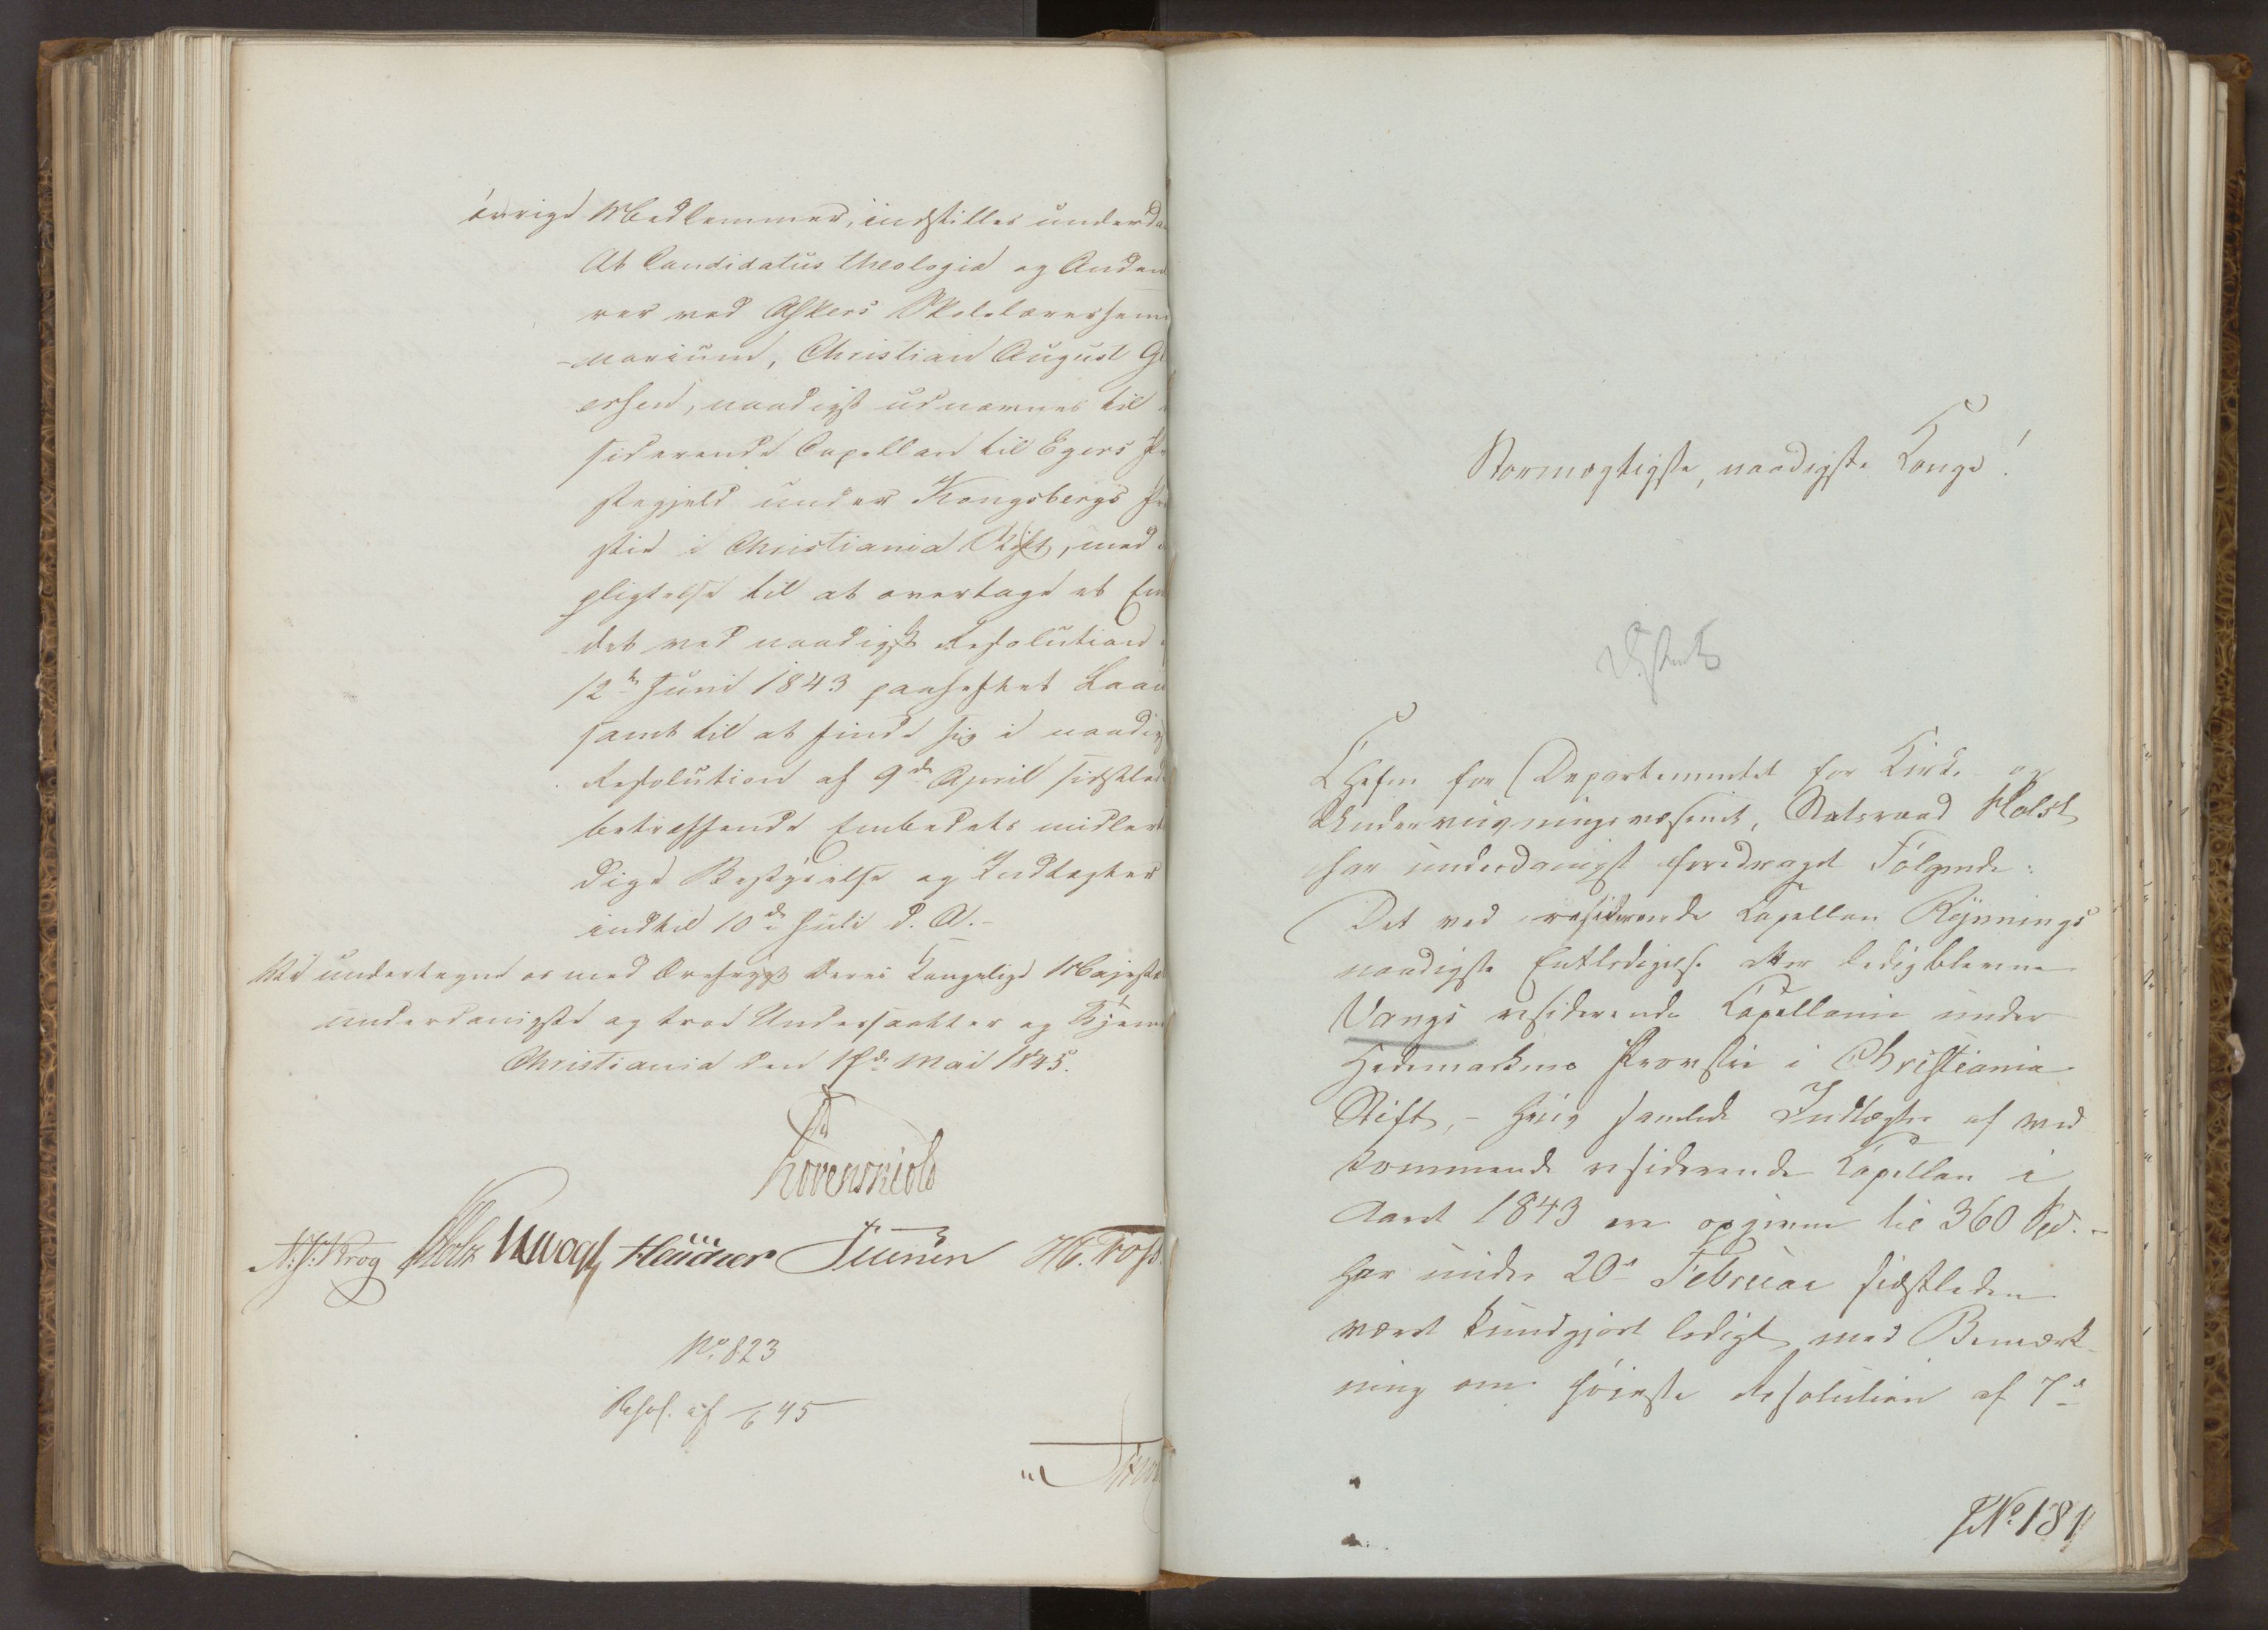 övrige Medlemmer, indstilles underda
At Candidatus theologiæ og Anden
rer ved Askers Skolelærersemi
-narium, Christian August G
ersen, naadigst udnævnes til
siderende Capellan til Egers Pr
stegjeld under Kongsbergs Pr
stie i Christiania Stift, med
pligtelse til at overtage et Em
det ved naadigst Resolution
12te Juni 1843 paaheftet Laan
samt til at finde sig i naadig
Resolution af 9de April sidstled
betræffende Embedets midler
dige Bestyrelse og Indtægter
indtil 10de Juli d. A.-
Vi undertegne os med Ærefrygt Deres Kongelige Majestæ
underdanigste og troe Undersaatter og Tjene
Christiania den 17de Mai 1845.
Lövenskiold
N. J. Krog Holst Vogt Heidner
H. Foss.
No. 823
Resol. af 6 45
Stormægtigste, naadigste Konge!
Chefen for Departementet for Kirke og
Underviisningsvæsenet, Statsraad Holst
har underdanigst foredraget Følgende:
Det ved residerende Capellan Rynnings
naadigste Entledigelse ledigblevne
Vangs residerende Capellanie under
Hedemarkens Provstie i Christiania
Stift, - hvis samlede Indtægter af ved
kommende residerende Capellan i
Aaret 1843 ere opgivne til 360 Spd. -
har under 20de Februar sidstleden
været kundgjort ledigt med Bemærk-
ning om höieste Resolution af 7de
No. 181